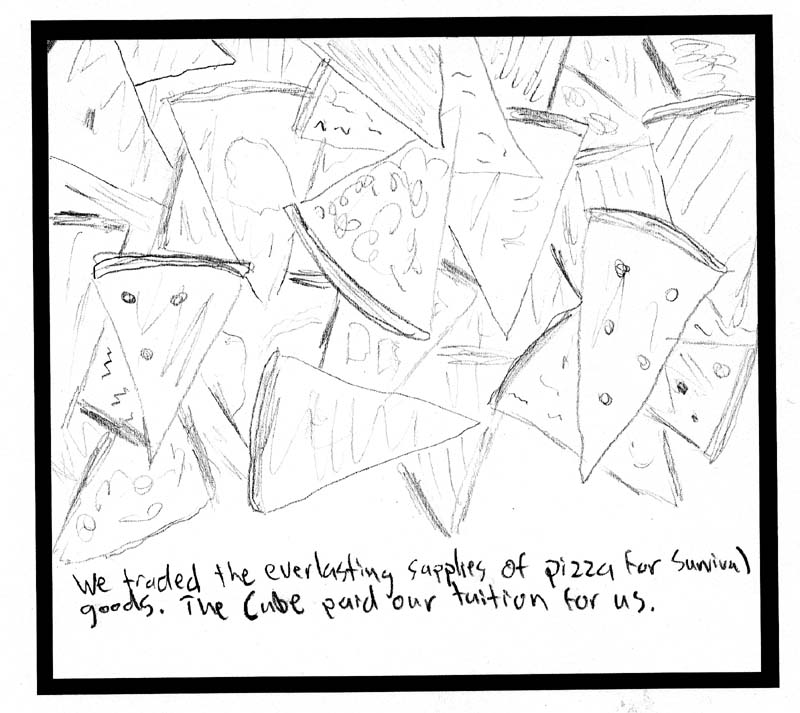 We traded the everlasting supplies of pizza for Survival
goods. The Cube paid our tuition for us.